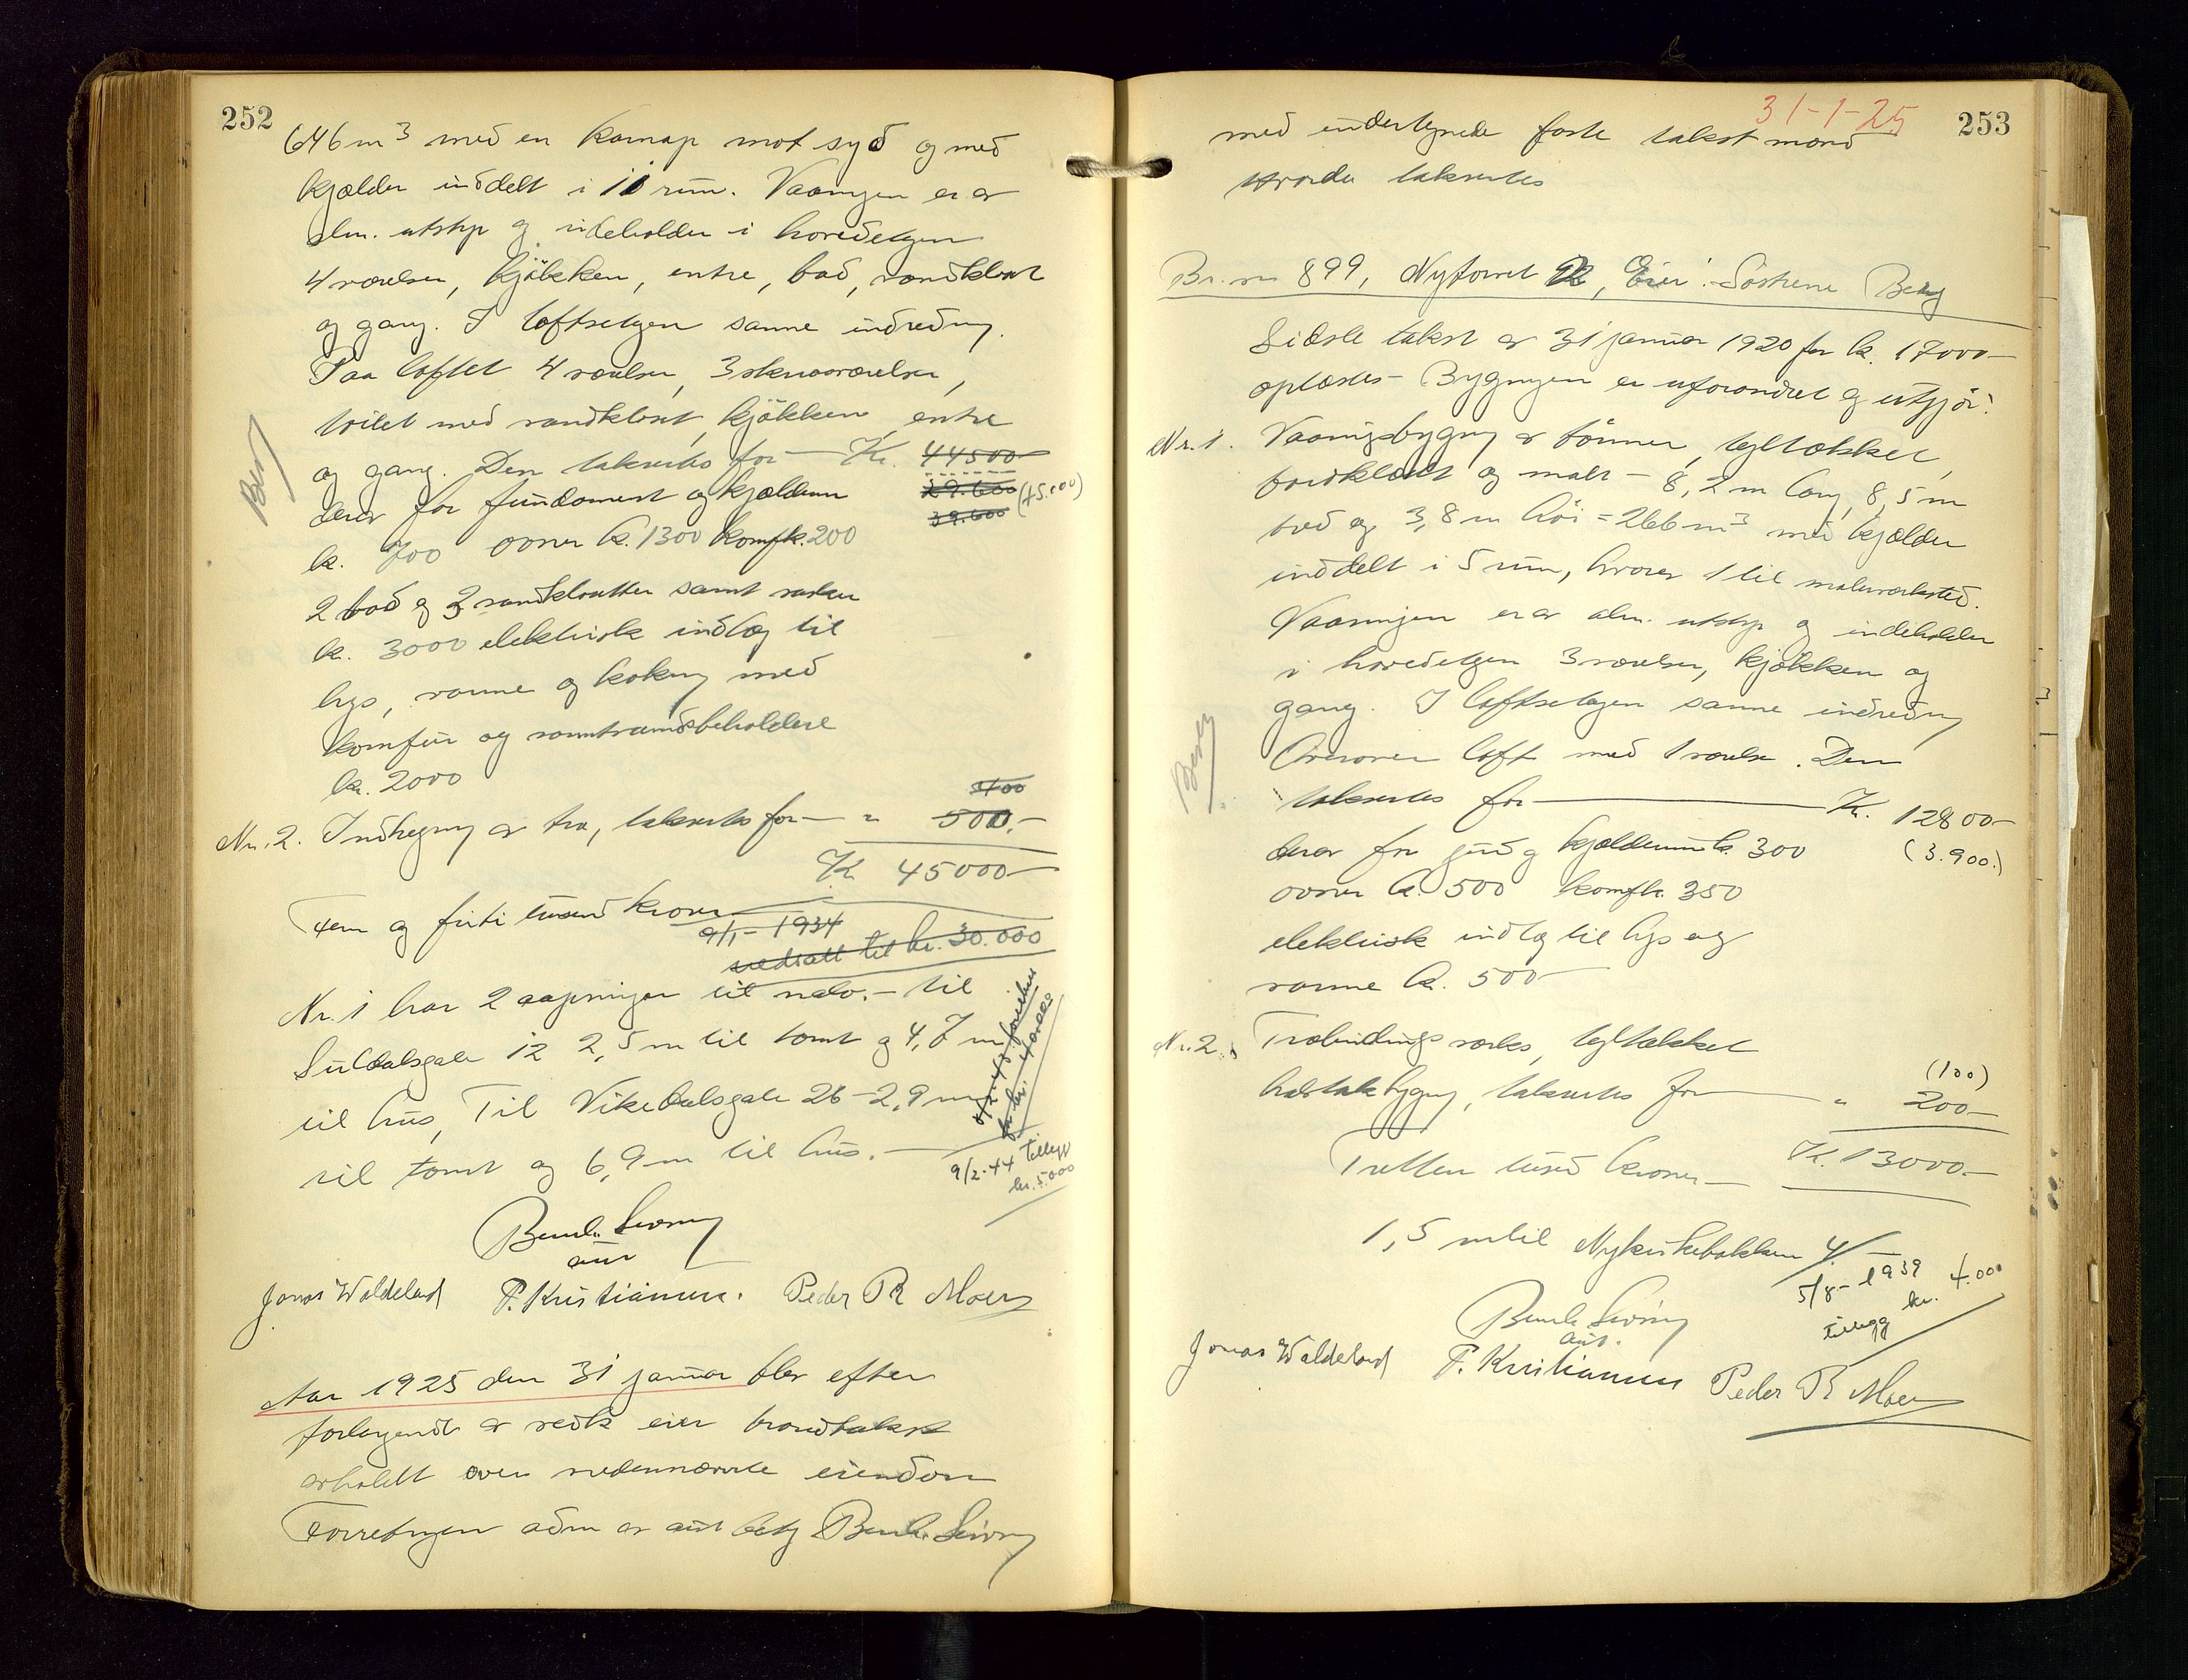 252
646 m³ med en karnap mot syd og med
kjælder inddelt i 11 rum. Vaaningen er av
alm. utstyr og indeholder i hovedetagen
4 værelser, kjøkken, entre, bad, vandklosæt
og gang. I loftsetagen samme indredning.
Paa loftet 4 værelser, 3 skraaværelser,
toilet med vandklosæt, kjøkken, entre
og gang. Den takseres for — Kr. 44500-
derav for fundament og kjælderm 29.600 (45.000)
k. 700 ovner k. 1300 komf k. 200 39.600
2 bad og 3 vandklosetter samt vasker
k. 3000 elektrisk indlæg til
lys, varme og kokning med
komfür og varmtvandsbeholdere
kr. 2000
400
Nr. 2. Indhegning av træ, takseres for — " 500.-
Kr 45000-
Fem og førti tusend kroner
9/1-1934
nedsatt til kr. 30.000
Nr. 1 har 2 aapninger til nabo. - til
Suldalsgate 12 2,5 m til tomt og 4,7 m
til hus, Til Vikedalsgate 26 - 2,9 m
til tomt og 6,9 m til hus. —
9/2-44 Tillegg
kr. 5.000
Berg
Jonas Waldeland F. Kristiansen. Peder R Moen
Aar 1925 den 31 januar blev efter
forlangende av vedk eier brandtakst
avholdt over nedennævnte eiendom
Forretningen adm av aut betj
31-1-25
253
med undertegnede faste takstmænd
Hvorda takseredes
Br. nr 899, Nytorvet, Eier: Søstrene Berg
Sidste takst av 31 januar 1920 for k. 17000-
oplæstes - Bygningen er uforandret og utgjør:
Nr. 1. Vaaningsbygning av tømmer, tegltækket,
bordklædt og malt - 8,2 m lang, 8,5 m
bred og 3,8 m høi = 266 m³ med kjælder
inddelt i 5 rum, hvorav 1 til malerverksted.
Vaaningen er av alm. utstyr og indeholder
i hovedetagen 3 værelser, kjøkken og
gang. I loftsetagen samme indredning
Ovenover loft med 1 værelse. Den
takseres for — Kr. 12800-
derav for grund og kjælderum k. 300 (3.900.)
ovner k. 500 komf k. 350
elektrisk indlæg til lys og
varme k. 500
Berg
Nr. 2. Træbindingsverks, tegltækket
halvtakbygning, takseres for — " 200-
(100)
Tretten tusend kroner — Kr. 13000.-
1,5 m til Nykirkebakken 4.
5/8-1939
tillegg kr. 4.000
aut.
Jonas Waldeland F. Kristiansen Peder R Moen